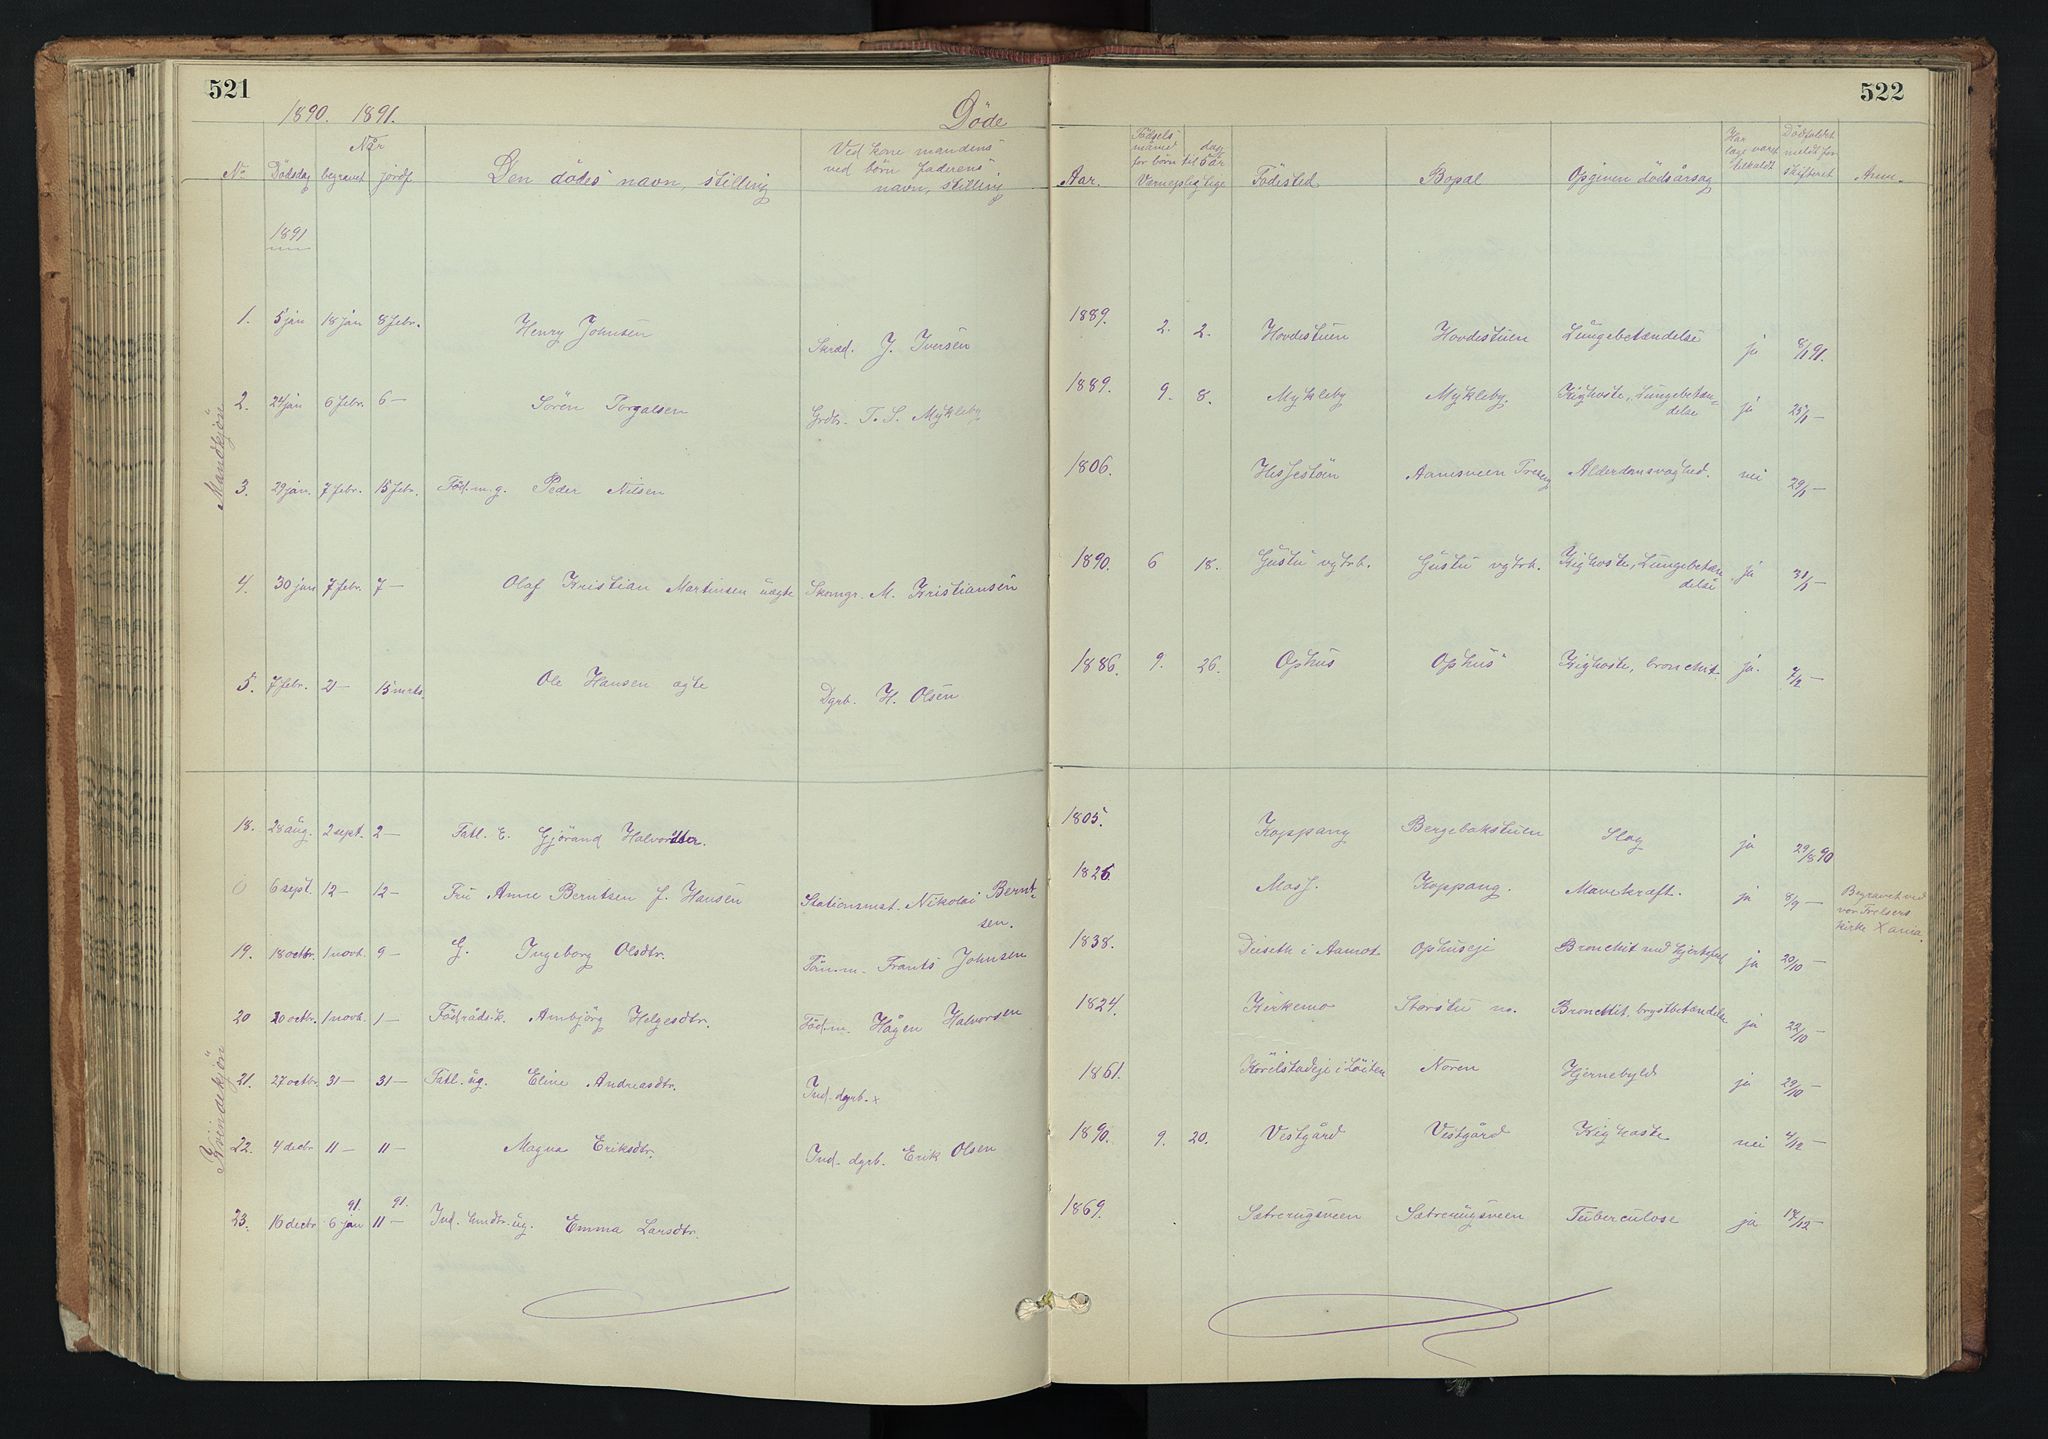 521
522
1890. 1891.
Döde
Når
No Dødsdag begravet jordf. Den dödes navn, stilling
Ved kone mandens
ved börn faderens
navn, stilling
Aar.
Födsels
måned dag
for børn til 5 år
Værnepligtige
Födested Bopal Opgiven dödsårsag
Har
læge været
tilkaldt
Dödsfaldet
meldt for
skifteret
Anm.
1891
Mandkjön
1. 5 jan 18 jan 8 febr. Henry Johnsen Skræd. J. Iversen 1889. 2. 2. Hovdestuen Hovdestuen Lungebetændelse ja 8/1 91.
2. 24 jan 6 febr. 6 — Sören Torgalsen Grdbr. T. S. Mykleby 1889. 9. 8. Mykleby Mykleby. Kighoste, Lungebetæn-
delse ja 25/1 —
3. 29 jan. 7 febr. 15 febr. Föd. m. g. Peder Nilsen 1806. Hessestöen Aarnsveen Alderdomsvaghed. nei 29/1 —
4. 30 jan 7 febr. 7 — Olaf Kristian Martinsen uægte Skomgr. M. Kristiansen 1890. 6 18. Gustu vgtrb. Gustu vgtrb. Kighoste, Lungebetæn
delse ja 31/1 —
5. 7 febr. 21 — 15 mrts. Ole Hansen ægte Dgrb. H. Olsen 1886. 9. 26. Ophus Ophus Kighoste, bronchit ja. 7/2 —
Kvindekjön
18. 28 aug. 2 sept. 2 — Fatl. E. Gjörand Halvorsdtter. 1805. Koppang Bergebakstuen Slag ja 29/8 90
0 6 sept. 12 — 12 — Fru Anne Berntsen f. Hansen Stationsmst. Nikolai Bernt-
sen. 1826 Moss. Koppang. Mavekræft. ja 8/9 — Begravet ved
vor Frelsers
kirke Xania.
19. 18 octbr. 1 novb. 9 — G. Ingeborg Olsdtr. Töm. m. Frants Johnsen 1838. Deiseth i Aamot Ophuseje Bronchit med hjertefeil ja 20/10 —
20 20 octbr. 1 novb. 1 — Födråds. k. Ambjörg Helgesdtr. Föd. m. Hågen Halvorsen 1824. Kirkemo Storstu no. Bronchit, brystbetændelse ja 22/10 —
21. 27 octbr. 31 — 31 — Fatl. ug. Eline Andreasdtr. Ind. dgrb. x 1861. i Löiten Noren Hjernebyld ja 29/10 —
22. 4 decbr 11 — 11 — Magna Eriksdtr. Ind. dgrb. Erik Olsen 1890. 9. 20. Vestgård Vestgård Kighoste nei 4/12 —
91. 91.
23. 16 decbr 6 jan 11 — Ind. Gmdtr. ug. Emma Larsdtr. 1869. Sætrerugsveen Sætrerugsveen Tuberculose ja 17/12 —